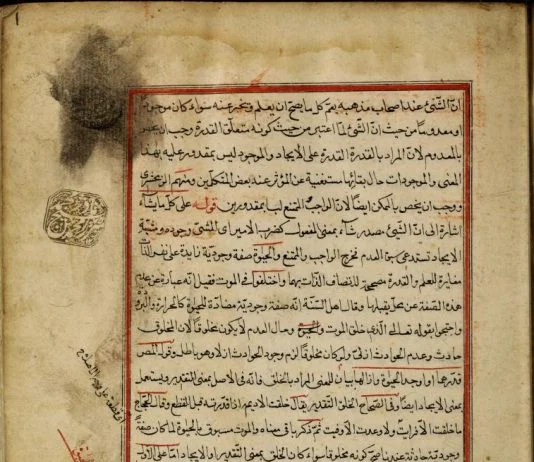 انّ الشئ عند اصحاب مذهبه يعمّ كل ما يصحّ ان يعلم ويخبر عنه سواء كان موجودا
او معدوما من حيث انّ الشئ لمّا اعتبر من حيث كونه متعلّق القدرة وجب ان
بالمعدوم لانّ المراد بالقدرة القدرة على الايجاد والموجود ليس بمقدور عليه بهذا
المعنى والموجودات حال بقائها مستغنية عن المؤثر عند بعض المتكلّمين ومنهم الزمخشرى
ووجب ان يخصّ بالممكن ايضا لانّ الواجب والممتنع ليسا بمقدورين قوله على كلّ ما يشاء
اشارة الى انّ الشئ مصدر شاء بمعنى المفعول كضرب الامير اى المشئ وجوده ومشية
الايجاد تستدعى سبق العدم فخرج الواجب والممتنع والحيوة صفة وجودية زايدة على نفس الذات
مغايرة للعلم والقدرة مصحّحة للاتصاف الذات بها واختلفوا فى الموت فقيل انّه عبارة عن عدم
هذه الصّفة عن محل يقبلها وقال اهل السّنّة انّه صفة وجوديّة مضادّة للحيوة كالحرارة والبرودة
واحتجوا بقوله تعالى الّذى خلق الموت والحيوة وحال العدم لا يكون مخلوقا لان المخلوق
حادث وعدم الحوادث ازلىّ ولو كان مخلوقا لزم وجود الحوادث ازلا وهو باطل وقول المص
قدّرهما او اوجد الحيوة وازالها بيان للمعنى المراد بالخلق فانّه فى الاصل بمعنى التقدير ويستعمل
بمعنى الايجاد ايضا وفى الصّحاح الخلق التقدير يقال خلقت الاديم اذا قدّرته قبل القطع وقال الحجّاج
ما خلقت الّا فريت ولا وعدت الّا وفيت ثمّ ذكر باقى معناه والموت مسبوق بالحيوة لما كان صفة
وجوديّة حادثة عندنا صحّ كونه مخلوقا سواء كان الخلق بمعنى التقدير او الايجاد امّا على الاوّل